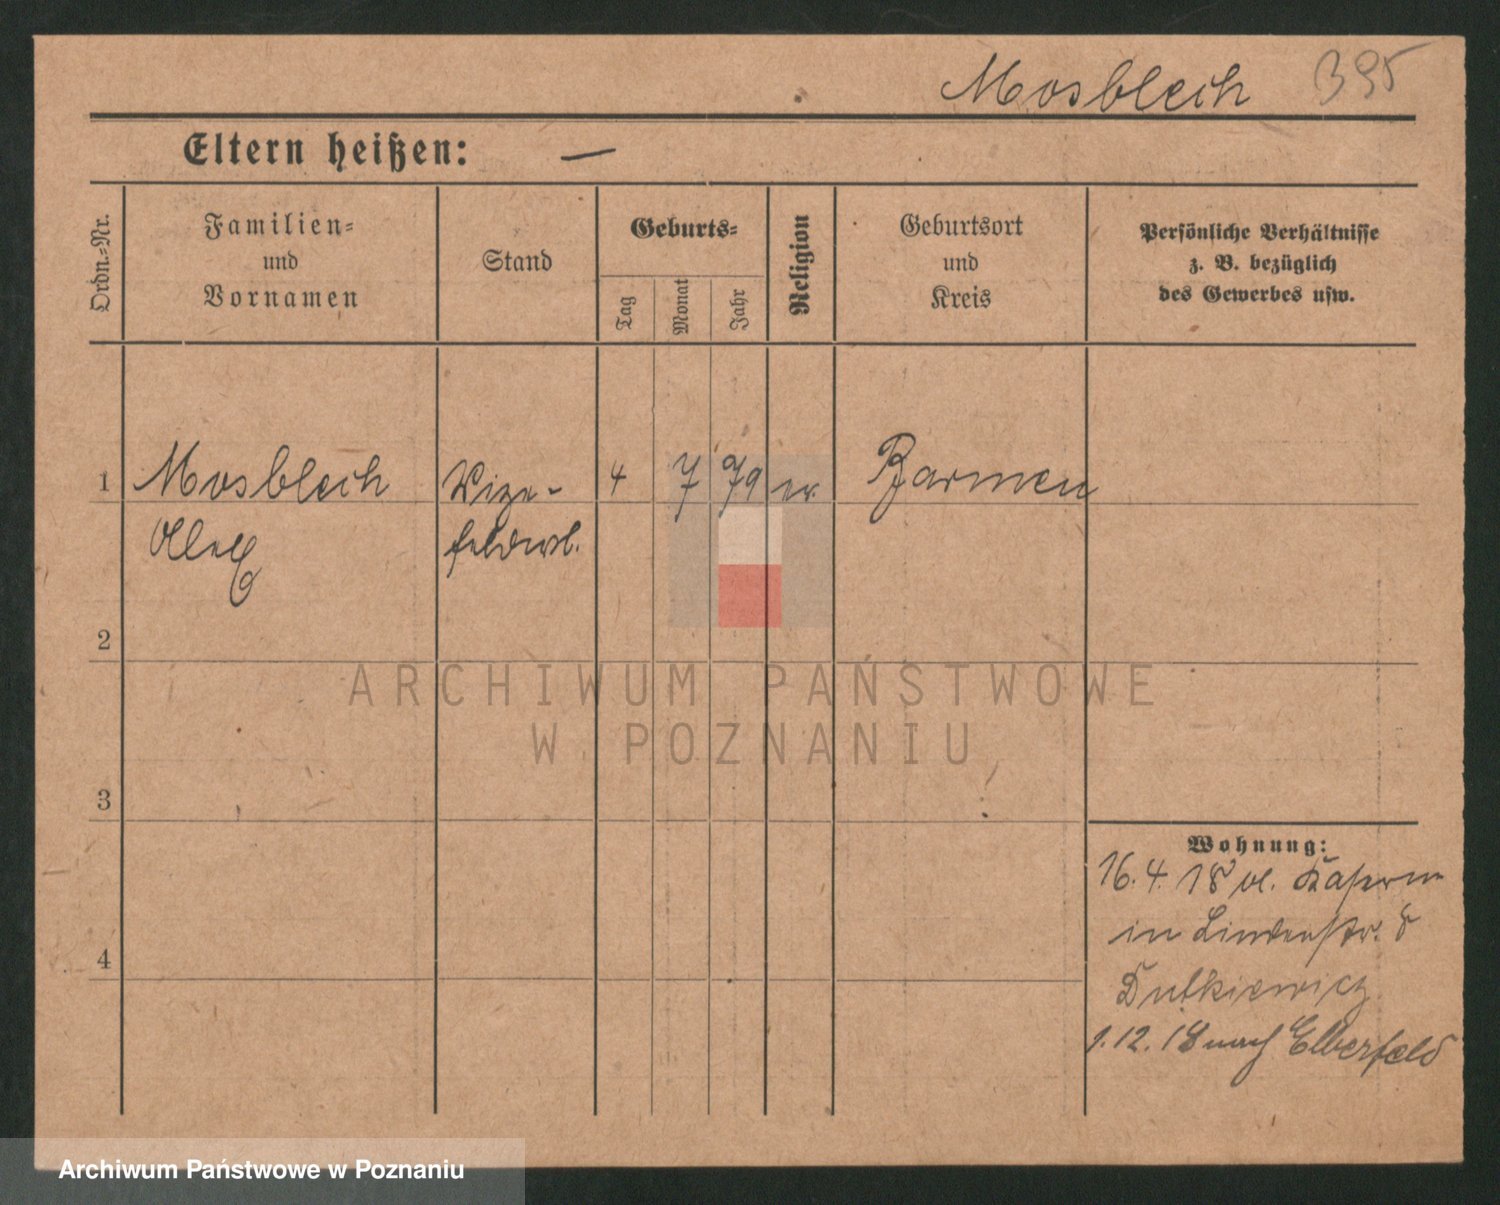 Mosblech 395
Eltern heißen: —
Ordn.-Nr.
Familien-
und
Vornamen
Stand
Geburts-
Tag
Monat
Jahr
Religion
Geburtsort
und
Kreis
Persönliche Verhältnisse
z. B. bezüglich
des Gewerbes usw.
1 Mosblech Vize- 4 7 79 ev Barmen
feldwbl.
2
3
4
Wohnung:
16.4.18 Kaserne
in Lindenstr. 8
Dutkiewicz
1.12.18 nach Elberfeld
ARCHIWUM PAŃSTWOWE
W POZNANIU
Archiwum Państwowe w Poznaniu